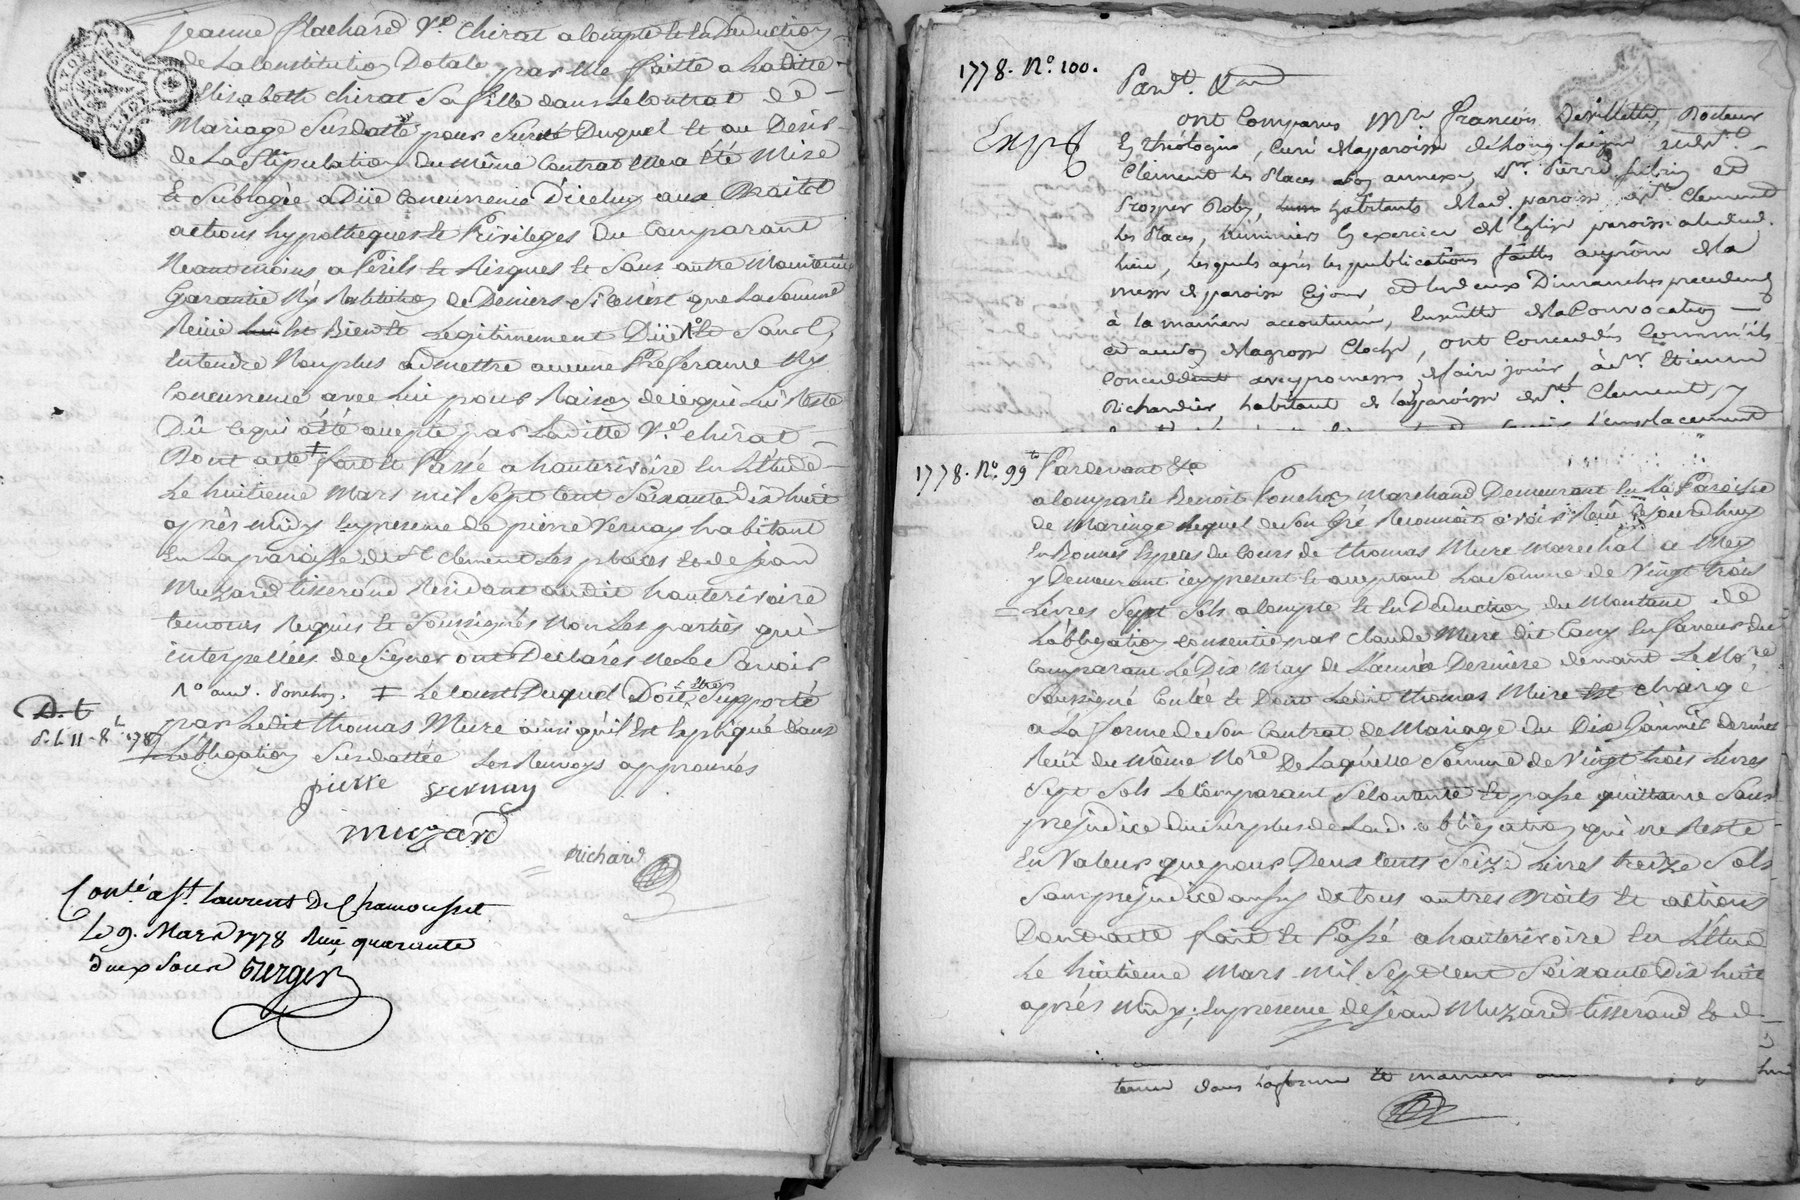 jeanne flachard Ve. Chirat a Compte et En Deduction
de La Constitution Dotale par Elle faitte a Laditte
Elisabeth Chirat Sa fille dans Le Contrat de
Mariage Susdatté pour Sureté Duquel Et au Desir
de La Stipulation Du Même Contrat Elle a été Mise
Et Subrogée a Düe Concurrence D'iceluy aux Droits
actions hypotheques Et Privileges Du Comparant
Neantmoins a Perils Et Risques Et Sans autre Maintenüe
Garantie Ny Restitution de Deniers Si Ce n'est que La Somme
Reüe Est Bien Et Legitimement Düe Sans
Entendre Non plus admettre aucune Preferance Ny
Concurrence avec Lui pour Raison de ce qui Lui Reste
Dû Ce qui a été accepté par Laditte Ve. Chirat
Dont acte ‡ fait Et Passé a hauterivoire En L'Etude
Le huitieme Mars mil Sept Cent Soixante dix huit
après Midy En presence de pierre Vernay habitant
En La paroisse de St Clement Les places Et de Jean
Muzard tisserand Residant audit hauterivoire
temoins Requis Et Soussignés Non Les parties qui
interpellées de Signer ont Declarés Ne Le Savoir
1o and. Ponchon. ‡ Le tout Duquel Doit être Supporté
par Ledit thomas Mure ainsi qu'il Est Expliqué dans
L'obligation Susdattée Les Renvoys approuvés
D. t
d. l. 11 - 8
pierre vernay
muzard
Richard
Conlé a St. Laurent De Chamousset
Le 9. Mars 1778 Reçu quarante
deux sous
1778. No. 100.
Pardt. &a
Exp
ont Comparus Mre françois Devillette, Docteur
En théologie, Curé de la paroisse de Longessaigne et de St.
Clement Les Places son annexe, Sr. Pierre et
Prosper habitants de lad. paroisse de St. Clement
les Places, Luminiers En exercice de L'Eglise paroissiale dud.
lieu, lesquels après les publications faittes au prône de la
messe de paroisse Cejour et les deux Dimanches precedents
à la maniere accoutumé, Ensuitte de la Convocation
et au son de la grosse Cloche, ont Conceddés Comm'ils
Conceddent avec promesses de faire jouir, à Sr. Etienne
Richardier, habitant de la paroisse de St. Clement,
l'emplacement
1778. No. 99 Pardevant &a
a Comparû Benoit Ponchon Marchand Demeurant En La Paroisse
de Maringe Lequel de Son Gré Reconnoit avoir Reçu Cejourd'huy
En Bonnes Especes du Cours de thomas Mure Marechal a Meys
y Demeurant icy present Et acceptant La Somme de Vingt trois
Livres Sept Sols a Compte Et En Deduction du Montant de
L'obligation Consentie par Claude Mure dit Cany En faveur du
Comparant Le Dix May de L'année Derniere devant Le Nore.
Soussigné Conlée Et Dont Ledit thomas Mure est chargé
a La forme de Son Contrat de Mariage du Dix Janvier dernier
Reçu du Même Nore De Laquelle Somme de Vingt trois Livres
Sept Sols Le Comparant Se Contente Et passe quittance Sans
prejudice du Surplus de Lad. obligation qui ne Reste
En Valeur que pour Deux Cents Seize Livres treize Sols
Sans prejudice aussy de tous autres Droits Et actions
Dont acte fait Et Passé a hauterivoire En L'Etude
Le huitieme Mars Mil Sept Cent Soixante Dix huit
après Midy, En presence de Jean Muzard tisserand Et de
tenue dans la forme et maniere